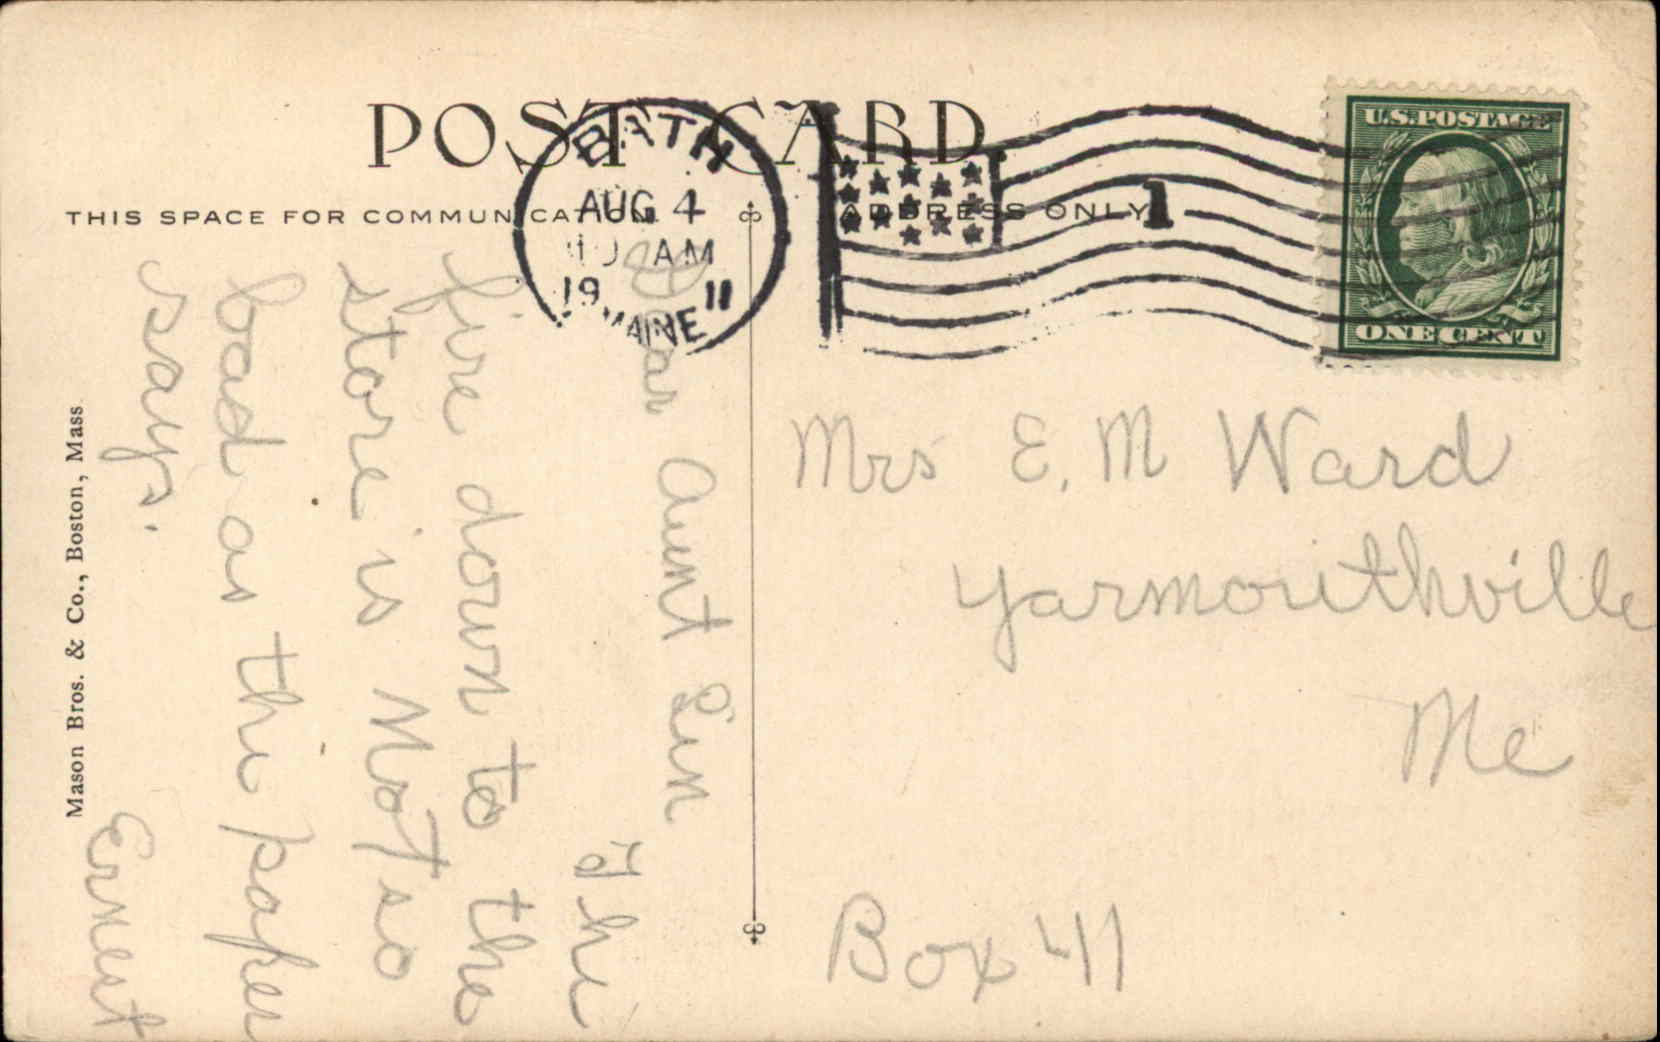 POST CARD
THIS SPACE FOR COMMUNICATION
ADDRESS ONLY
BATH
AUG 4
10 AM
1911
MAINE
1
U.S. POSTAGE
ONE CENT
Mrs E. M Ward
Yarmouthville
Me
Box 41
Dear Aunt Lin
The
fire down to the
store is Not so
bad as the paper
says.
Ernest
Mason Bros. & Co., Boston, Mass.